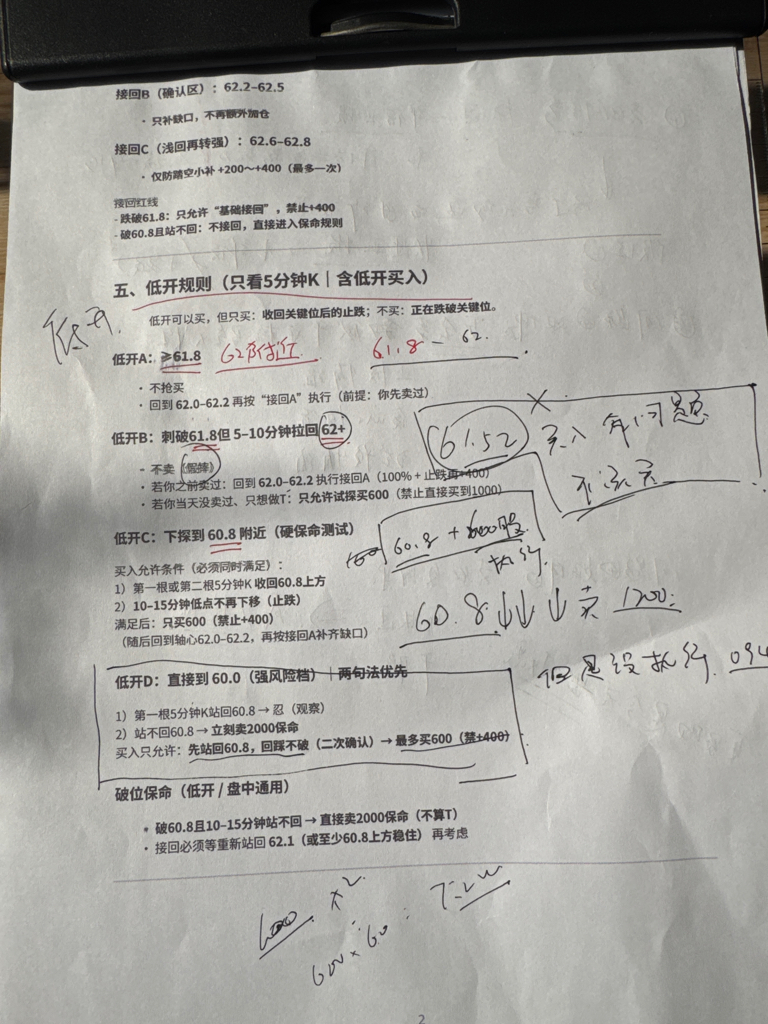 接回B（确认区）：62.2–62.5
· 只补缺口，不再额外加仓
接回C（浅回再转强）：62.6–62.8
· 仅防踏空小补 +200～+400（最多一次）
接回红线
- 跌破61.8：只允许“基础接回”，禁止+400
- 破60.8且站不回：不接回，直接进入保命规则
五、低开规则（只看5分钟K｜含低开买入）
低开.
低开可以买，但只买：收回关键位后的止跌；不买：正在跌破关键位。
低开A：≥61.8 62附近 61.8 – 62.
· 不抢买
· 回到 62.0–62.2 再按“接回A”执行（前提：你先卖过）
低开B：刺破61.8但 5–10分钟拉回 62+
61.52 买入 有问题
不该买
- 不卖（假摔）
· 若你之前卖过：回到 62.0–62.2 执行接回A（100% + 止跌再+400）
· 若你当天没卖过、只想做T：只允许试探买600（禁止直接买到1000）
低开C：下探到 60.8 附近（硬保命测试）
60.8 + 600股
执行.
买入允许条件（必须同时满足）：
1）第一根或第二根5分钟K 收回60.8上方
2）10–15分钟低点不再下移（止跌）
满足后：只买600（禁止+400）
（随后回到轴心62.0–62.2，再按接回A补齐缺口）
60.8 ↓↓ ↓ 卖 1200.
但是没执行.
低开D：直接到 60.0（强风险档）｜两句法优先
1）第一根5分钟K站回60.8 → 忍（观察）
2）站不回60.8 → 立刻卖2000保命
买入只允许：先站回60.8，回踩不破（二次确认）→ 最多买600（禁+400）
破位保命（低开 / 盘中通用）
• 破60.8且10–15分钟站不回 → 直接卖2000保命（不算T）
· 接回必须等重新站回 62.1（或至少60.8上方稳住） 再考虑
600 x 2
600 x 60 : 7.2w
2